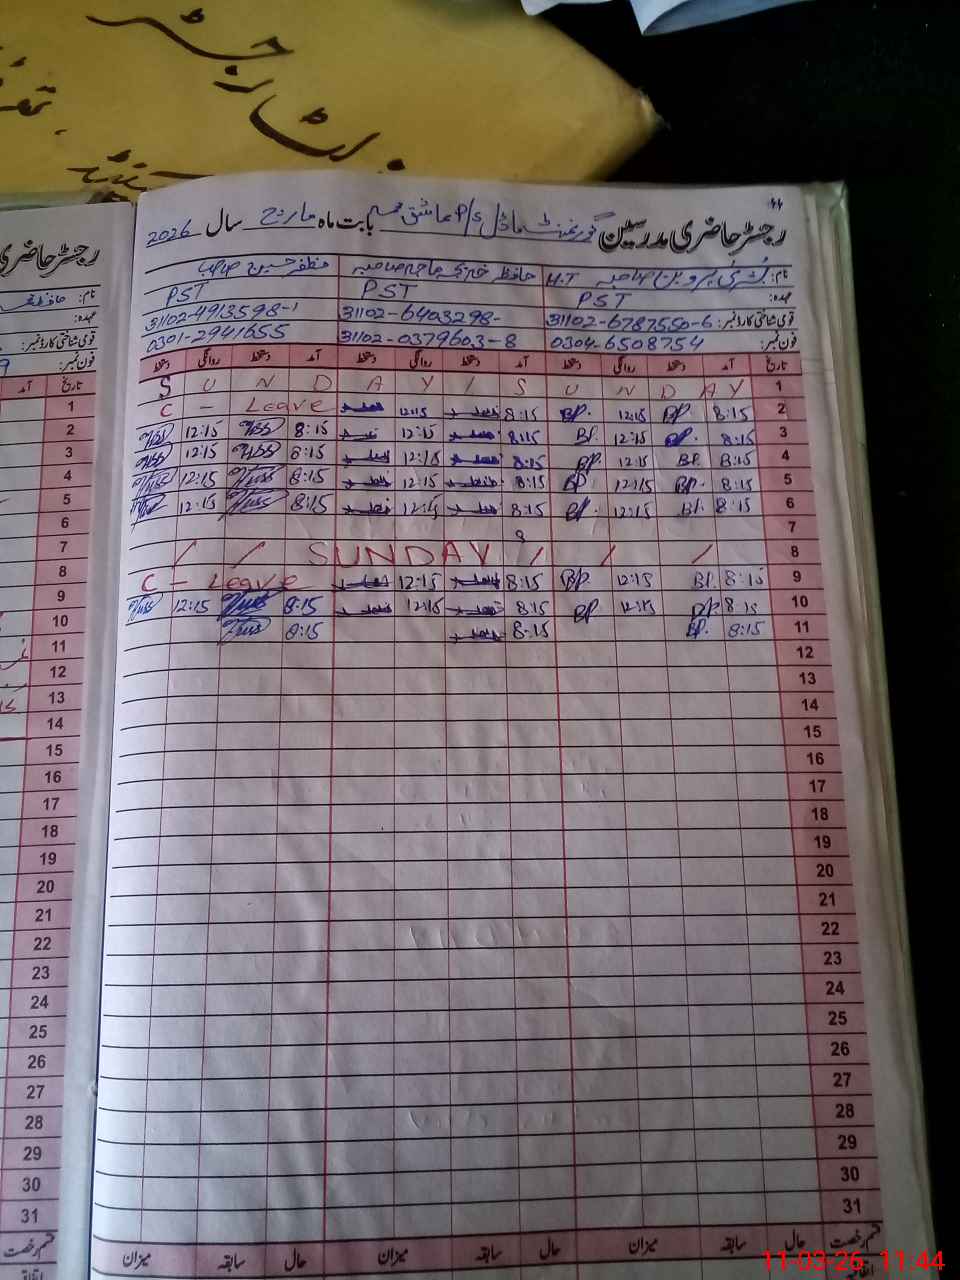 رجسٹر
رجسٹر حاضری مدرسین گورنمنٹ ماڈل P/S عاشق بابت ماہ مارچ سال 2026
نام: بشریٰ پروین صاحبہ H.T حافظ خدیجہ ماجد صاحبہ مظفر حسین صاحب
عہدہ: PST PST PST
قومی شناختی کارڈ نمبر: 31102-6787550-6 31102-6403298- 31102-4913598-1
فون نمبر: 0304-6508754 31102-0379603-8 0301-2941655
تاریخ آمد دستخط روانگی دستخط آمد دستخط روانگی دستخط آمد دستخط روانگی دستخط
1 S U N D A Y / S U N D A Y
2 8:15 BP. 12:15 BP. 8:15 12:15 C - Leave
3 8:15 BP. 12:15 BP. 8:15 12:15 8:15 12:15
4 8:15 BP. 12:15 BP. 8:15 12:15 8:15 12:15
5 8:15 BP. 12:15 BP 8:15 12:15 8:15 12:15
6 8:15 BP. 12:15 BP. 8:15 12:15 8:15 12:15
7 8
8 / / SUNDAY / / /
9 8:15 BP. 12:15 BP. 8:15 12:15 C - Leave
10 8:15 BP 12:15 BP 8:15 12:15 8:15 12:15
11 8:15 BP. 8:15 8:15
12
13
14
15
16
17
18
19
20
21
22
23
24
25
26
27
28
29
30
31
قسم رخصت حال سابقہ میزان حال سابقہ میزان حال سابقہ میزان
رجسٹر حاضری
نام:
عہدہ:
قومی شناختی کارڈ نمبر:
فون نمبر: 9
تاریخ آمد
1
2
3
4
5
6
7
8
9
10
11
12
13
14
15
16
17
18
19
20
21
22
23
24
25
26
27
28
29
30
31
قسم رخصت
11-03-26 11:44